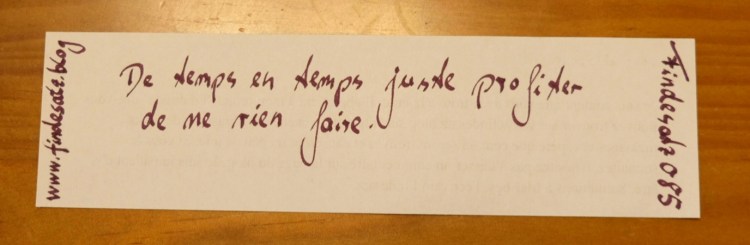 www.findesatz.blog
De temps en temps juste profiter
de ne rien faire.
Findesatz 085